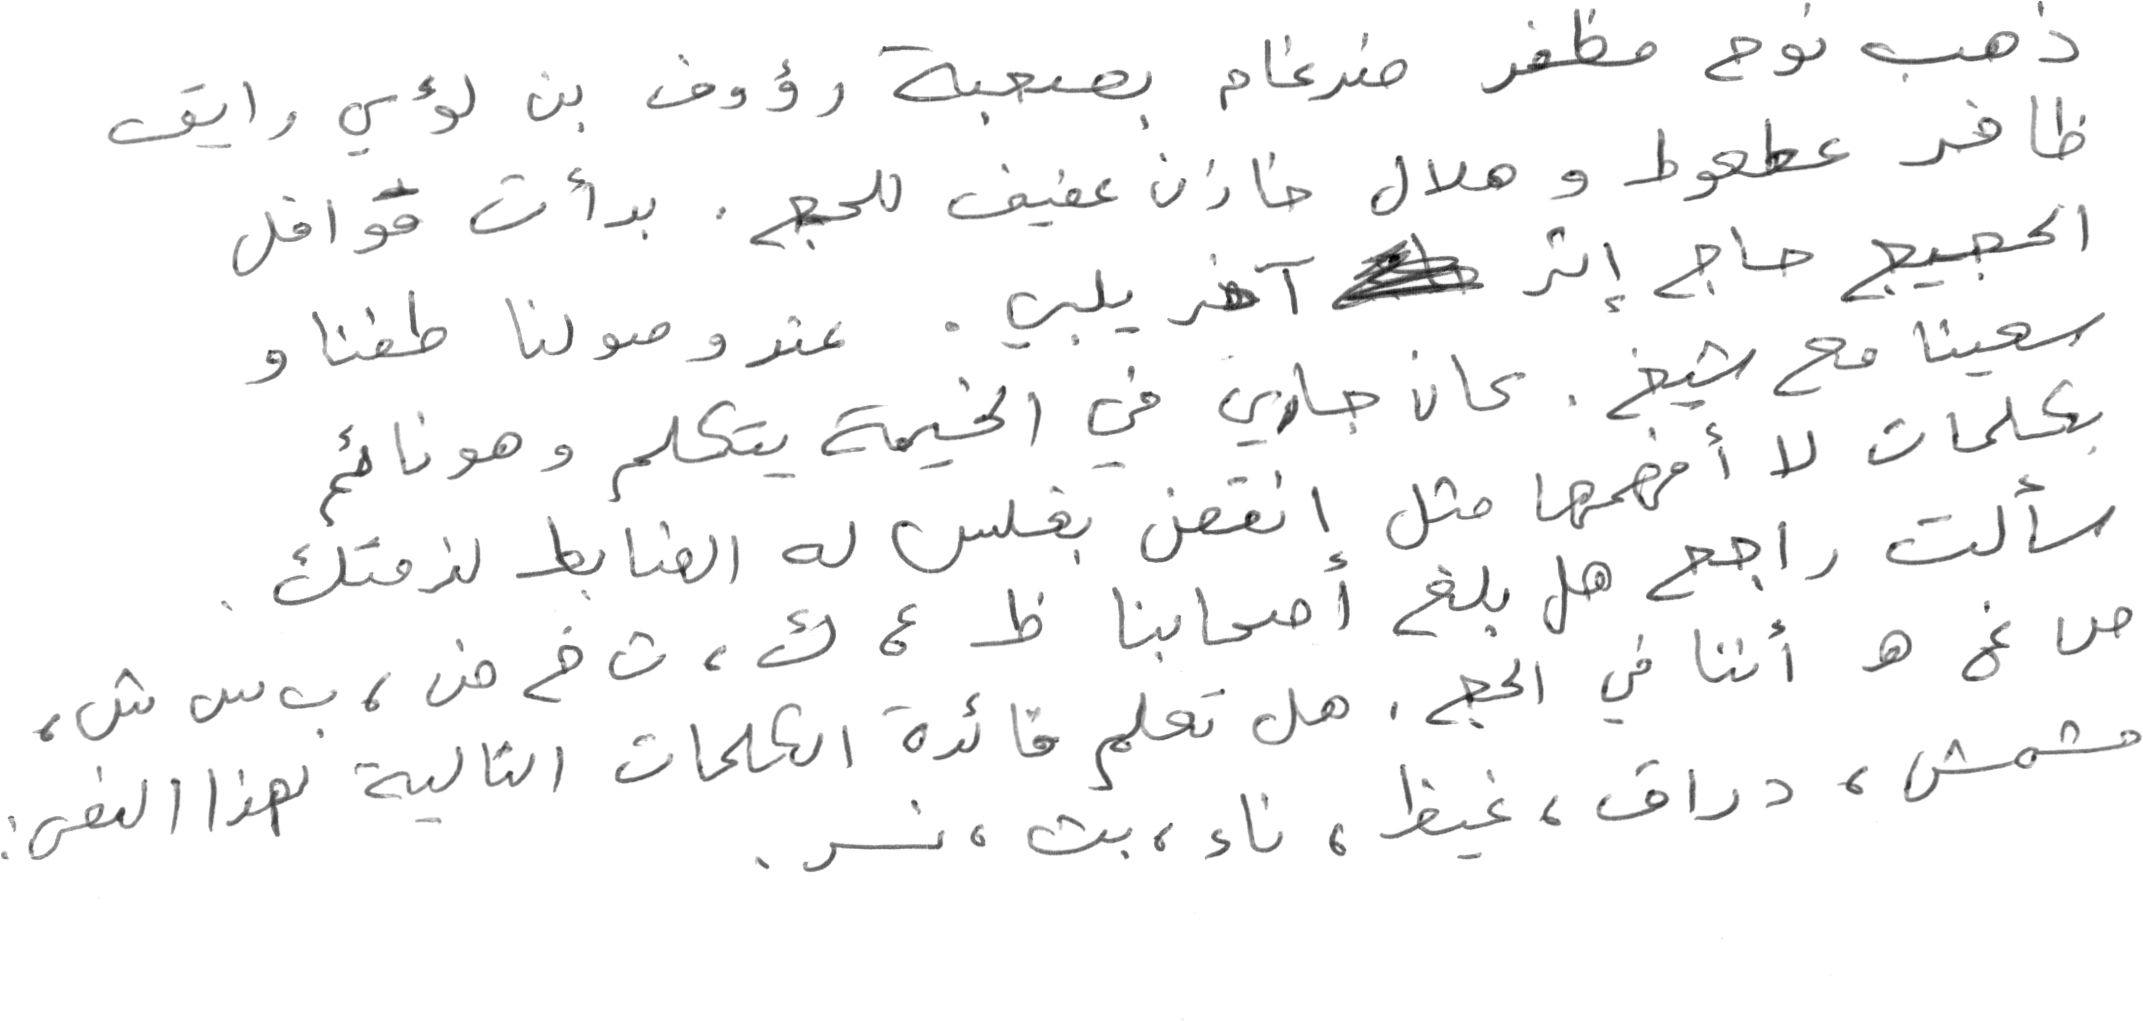 ذهب نوح مظفر ضرغام بصحبة رؤوف بن لؤي رايق
ظافر عطعوط و هلال خازن عفيف للحج . بدأت قوافل
الحجيج حاج إثر آخر يلبي . عند وصولنا طفنا و
سعينا مع شيخ . كان جاري في الخيمة يتكلم وهو نائم
بكلمات لا أفهمها مثل انقض بغلس له الضابط لذمتك .
سألت راجح هل بلغ أصحابنا ظ ع ك ، ث خ ض ، ب س ش ،
ص غ ه أننا في الحج . هل تعلم فائدة الكلمات التالية لهذا النص :
مشمش ، دراق ، غيظ ، ناء ، بث ، نسر .